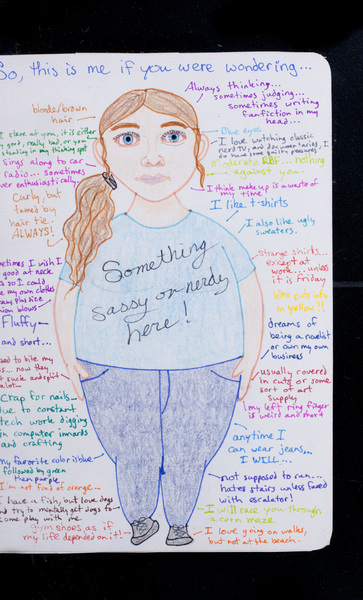 So, this is me if you were wondering...
blonde/brown
hair
I stare at you, it is either
good, really bad, or you
standing in my thinking spot
sings along to car
radio... sometimes
over enthusiastically.
Curly, but
tamed by
hair tie.
ALWAYS!
sometimes I wish I
good at neck
so I could
my own clothes
plus size
blows-
Fluffy
and short...
used to bite my
now they
suck and split
alot-
Crap for nails-
due to constant
tech work digging
in computer innards
and crafting
my favorite color is blue
followed by green
then purple
I'm not fond of orange...
I have a fish, but love dogs
and try to mentally get dogs to
come play with me
gym shoes as if
my life depended on it!
Always thinking...
sometimes judging...
sometimes writing
fanfiction in my
head...
Blue eyes
I love watching classic
nerd TV, and documentaries, I
do have some guilty pleasures
moderate RBF... nothing
against you.
I think make up is a waste of
my time!
I like t-shirts
I also like ugly
sweaters.
Something
sassy or nerdy
here!
strange shirts...
except at
work... unless
it is Friday
who puts
in yellow?!
dreams of
being a novelist
or own my own
business
usually covered
in cuts or some
sort of art
supply
my left ring finger
is weird and short
anytime I
can wear jeans,
I WILL...
not supposed to run...
hates stairs unless faced
with escalator!
I will race you through
a corn maze
I love going on walks,
but not at the beach.